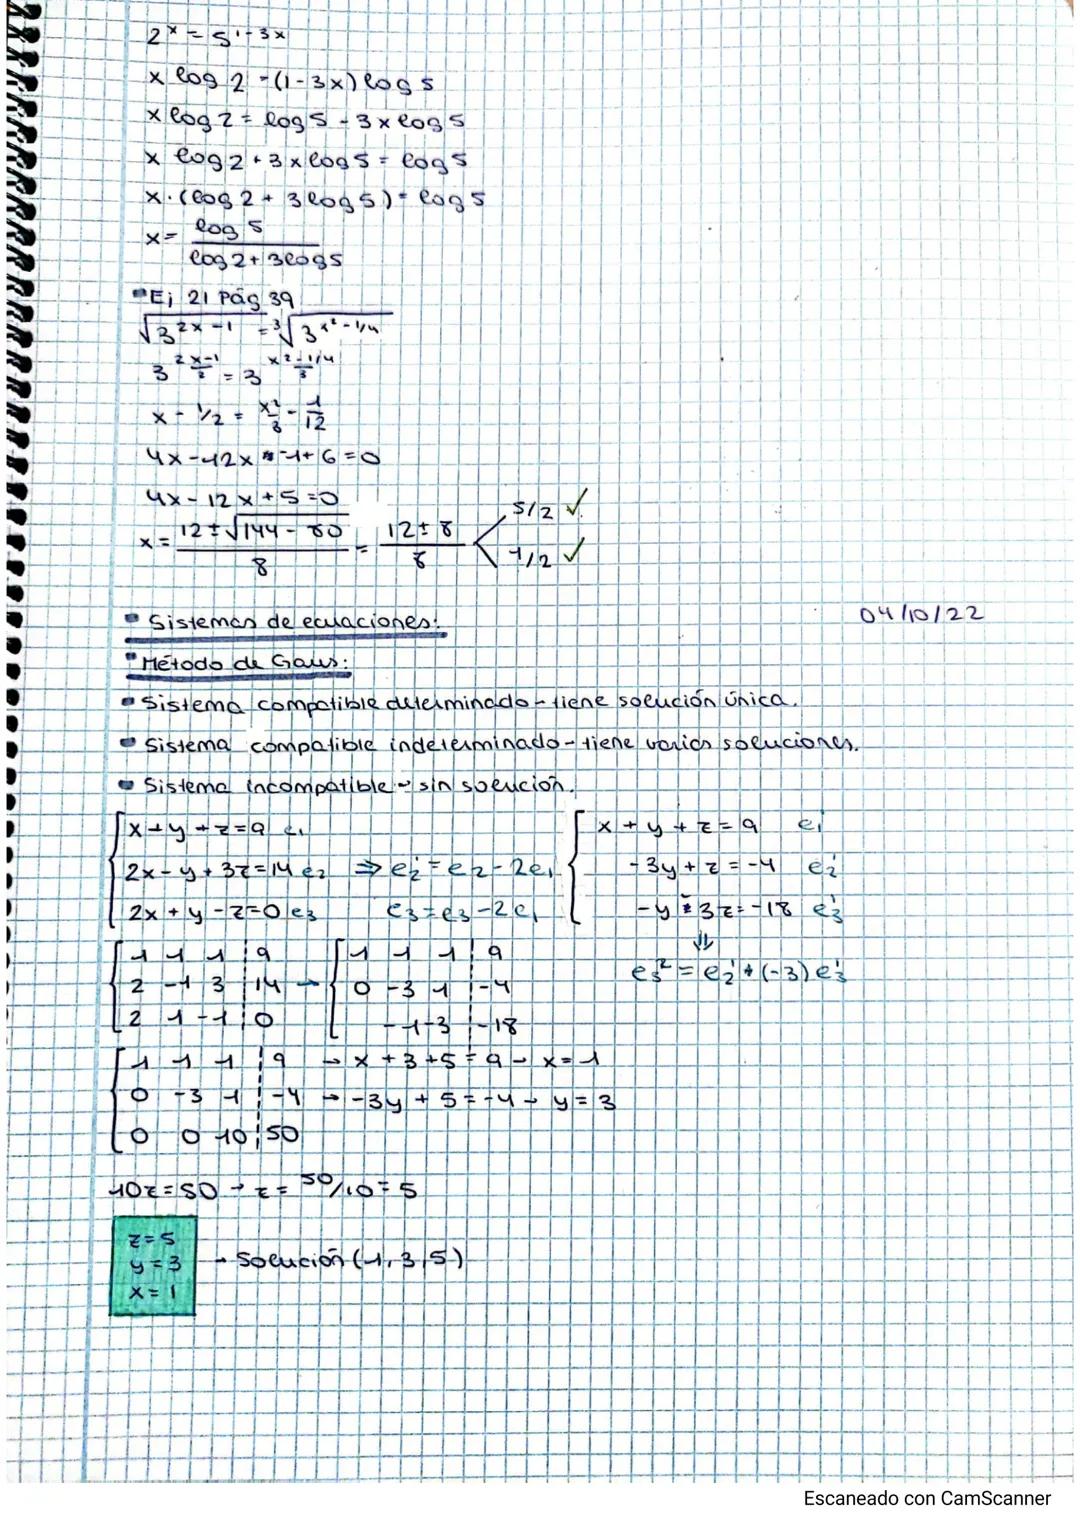 2^x = 5^(1-3x)
x log 2 = (1-3x) log 5
x log 2 = log 5 - 3x log 5
x log 2 + 3x log 5 = log 5
x · (log 2 + 3 log 5) = log 5
x = log 5 / (log 2 + 3 log 5)
Ej 21 Pág 39
√(3^(2x-1)) = ∛(3^(x²-1/4))
3^((2x-1)/2) = 3^((x²-1/4)/3)
x - 1/2 = x²/3 - 1/12
4x - 12x - 1 + 6 = 0
4x - 12x + 5 = 0
x = (12 ± √(144 - 80)) / 8 = (12 ± 8) / 8 < 5/2 ✓ 1/2 ✓
Sistemas de ecuaciones: 04/10/22
Método de Gaus:
Sistema compatible determinado - tiene solución única.
Sistema compatible indeterminado - tiene varias soluciones.
Sistema incompatible - sin solución.
x + y + z = 9 e₁ x + y + z = 9 e₁'
2x - y + 3z = 14 e₂ ⇒ e₂' = e₂ - 2e₁ -3y + z = -4 e₂'
2x + y - z = 0 e₃ e₃ = e₃ - 2e₁ -y - 3z = -18 e₃'
⇓
1 1 1 | 9 1 1 1 | 9
e₃² = e₂' + (-3) e₃'
2 -1 3 | 14 → 0 -3 1 | -4
2 1 -1 | 0 -1 -3 | -18
1 1 1 | 9 → x + 3 + 5 = 9 → x = 1
0 -3 1 | -4 → -3y + 5 = -4 → y = 3
0 0 10 | 50
10z = 50 → z = 50/10 = 5
z = 5
y = 3 → Solución (1, 3, 5)
x = 1
Escaneado con CamScanner